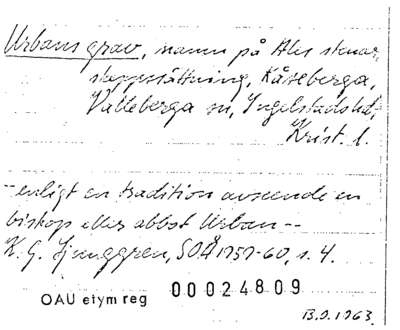 Urbans grav, namn på Ales stenar,
skeppssättning, Kåseberga,
Valleberga sn, Ingelstads hd,
Krist. l.
enligt en tradition avseende en
biskop eller abbot Urban --
K. G. Ljunggren, SOÅ 1959-60, s. 4.
OAU etym reg 00024809
13.9.1963